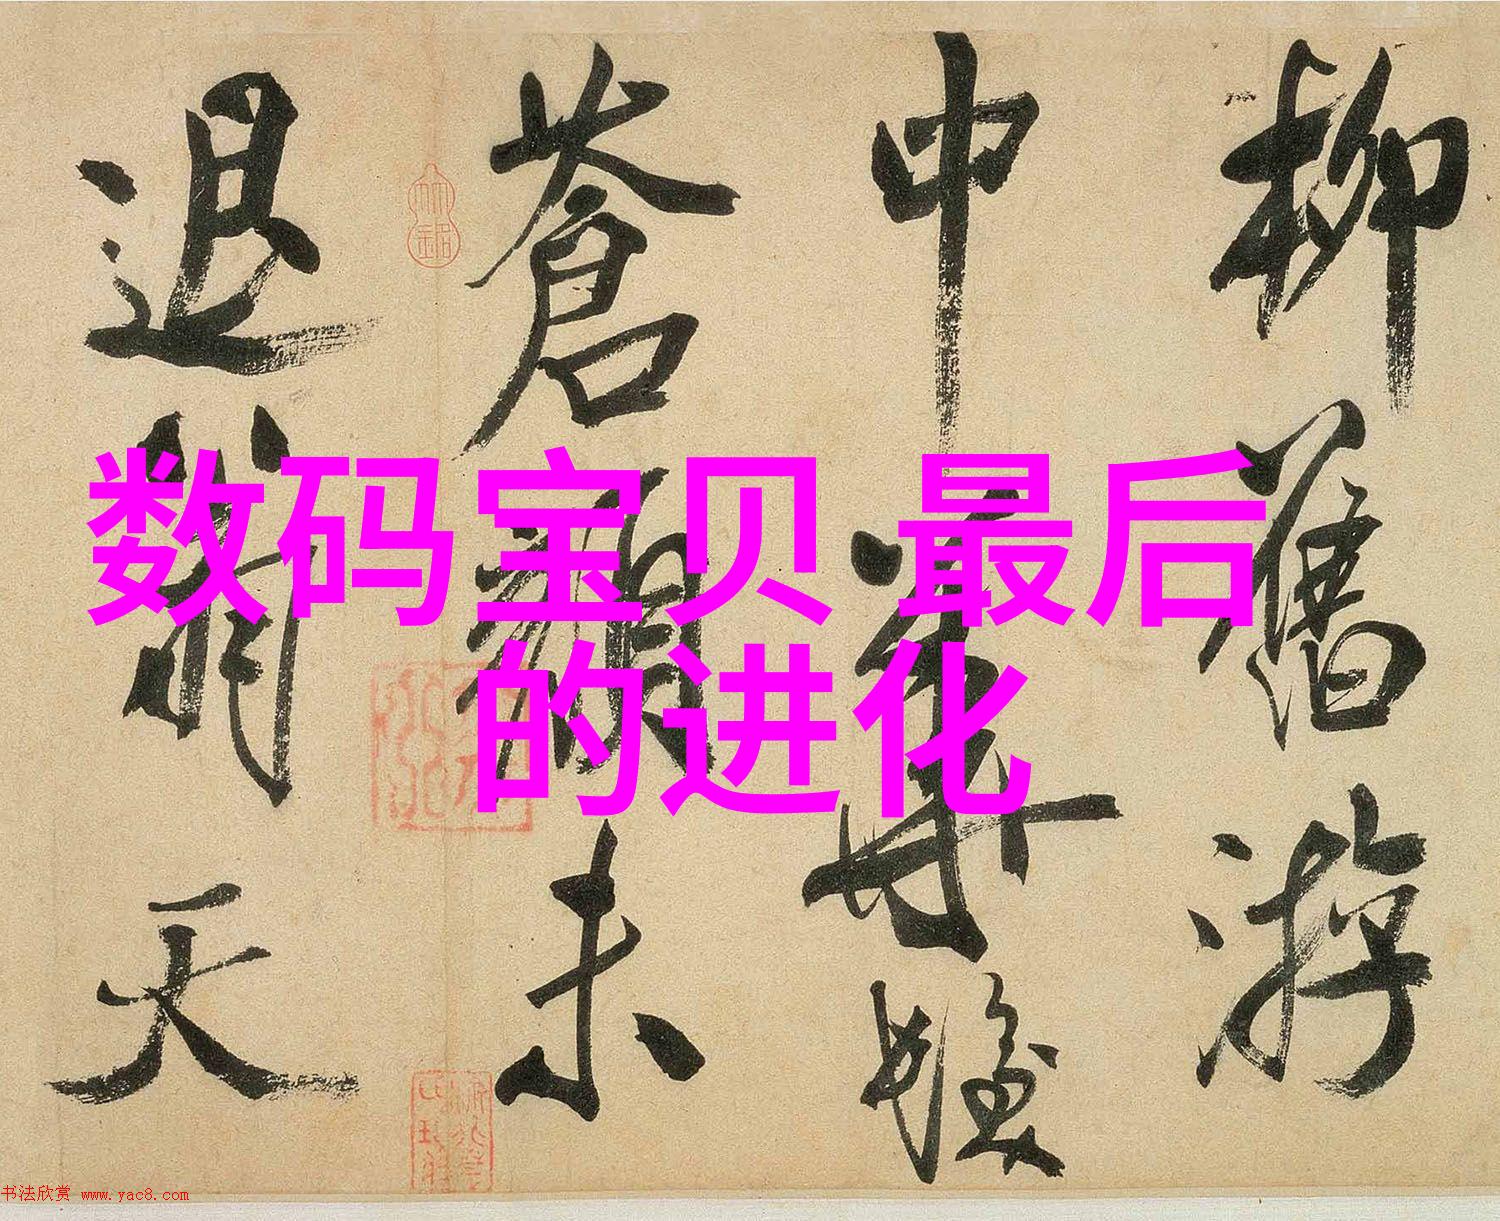 柳舊游
中華髮
蒼顏未
退翁天
数码宝贝 最后
的进化
书法欣赏 www.yac8.com